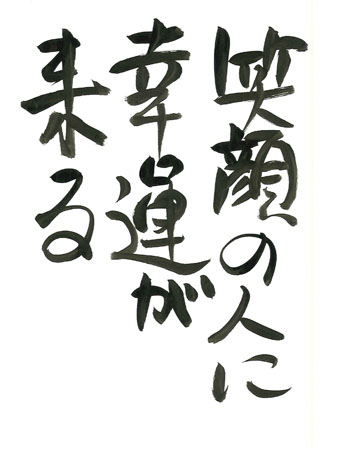 笑顔の人に
幸運が
来る